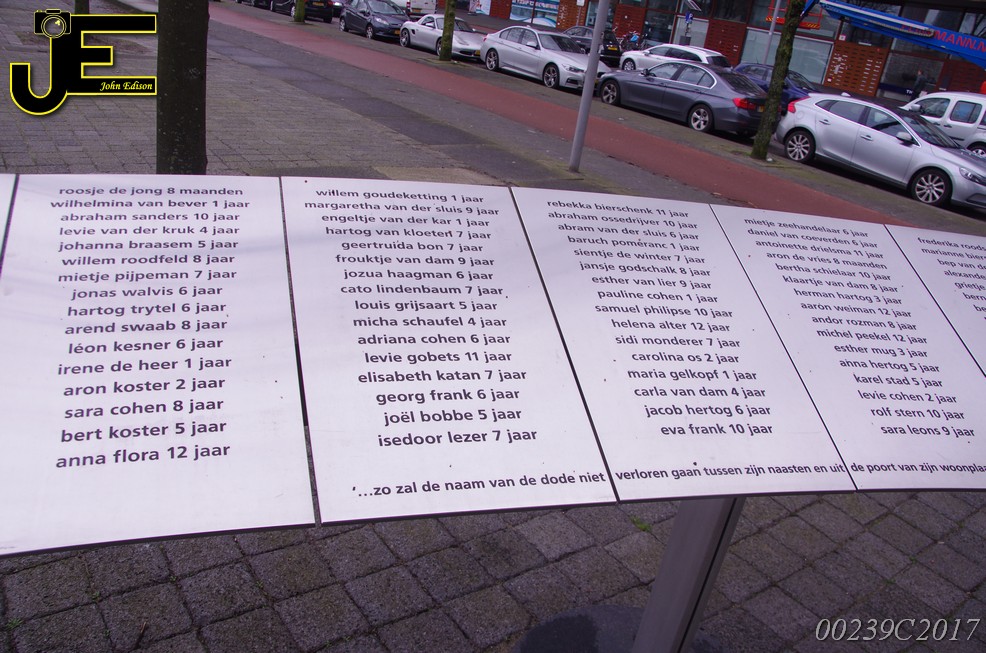 JE
John Edison
MANN.N
roosje de jong 8 maanden
wilhelmina van bever 1 jaar
abraham sanders 10 jaar
levie van der kruk 4 jaar
johanna braasem 5 jaar
willem roodfeld 8 jaar
mietje pijpeman 7 jaar
jonas walvis 6 jaar
hartog trytel 6 jaar
arend swaab 8 jaar
léon kesner 6 jaar
irene de heer 1 jaar
aron koster 2 jaar
sara cohen 8 jaar
bert koster 5 jaar
anna flora 12 jaar
willem goudeketting 1 jaar
margaretha van der sluis 9 jaar
engeltje van der kar 1 jaar
hartog van kloeten 7 jaar
geertruida bon 7 jaar
frouktje van dam 9 jaar
jozua haagman 6 jaar
cato lindenbaum 7 jaar
louis grijsaart 5 jaar
micha schaufel 4 jaar
adriana cohen 6 jaar
levie gobets 11 jaar
elisabeth katan 7 jaar
georg frank 6 jaar
joël bobbe 5 jaar
isedoor lezer 7 jaar
rebekka bierschenk 11 jaar
abraham ossedrijver 10 jaar
abram van der sluis 6 jaar
baruch pomeranc 1 jaar
sientje de winter 7 jaar
jansje godschalk 8 jaar
esther van lier 9 jaar
pauline cohen 1 jaar
samuel philipse 10 jaar
helena alter 12 jaar
sidi monderer 7 jaar
carolina os 2 jaar
maria gelkopf 1 jaar
carla van dam 4 jaar
jacob hertog 6 jaar
eva frank 10 jaar
mietje zeehandelaar 6 jaar
daniel van coeverden 6 jaar
antoinette drielsma 11 jaar
aron de vries 8 maanden
bertha schielaar 10 jaar
klaartje van dam 8 jaar
herman hartog 3 jaar
aaron weiman 12 jaar
andor rozman 8 jaar
michel peekel 12 jaar
esther mug 3 jaar
anna hertog 5 jaar
karel stad 5 jaar
levie cohen 2 jaar
rolf stern 10 jaar
sara leons 9 jaar
frederika
marianne
bep van
grietje
'...zo zal de naam van de dode niet verloren gaan tussen zijn naasten en uit de poort van zijn woonplaa
00239C2017